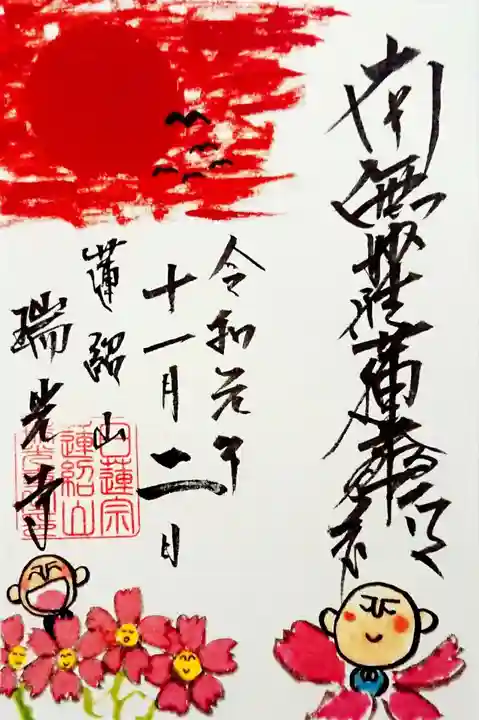 南無妙法蓮華経
令和元年
十一月二日
蓮紹山
瑞光寺
日蓮宗
蓮紹山